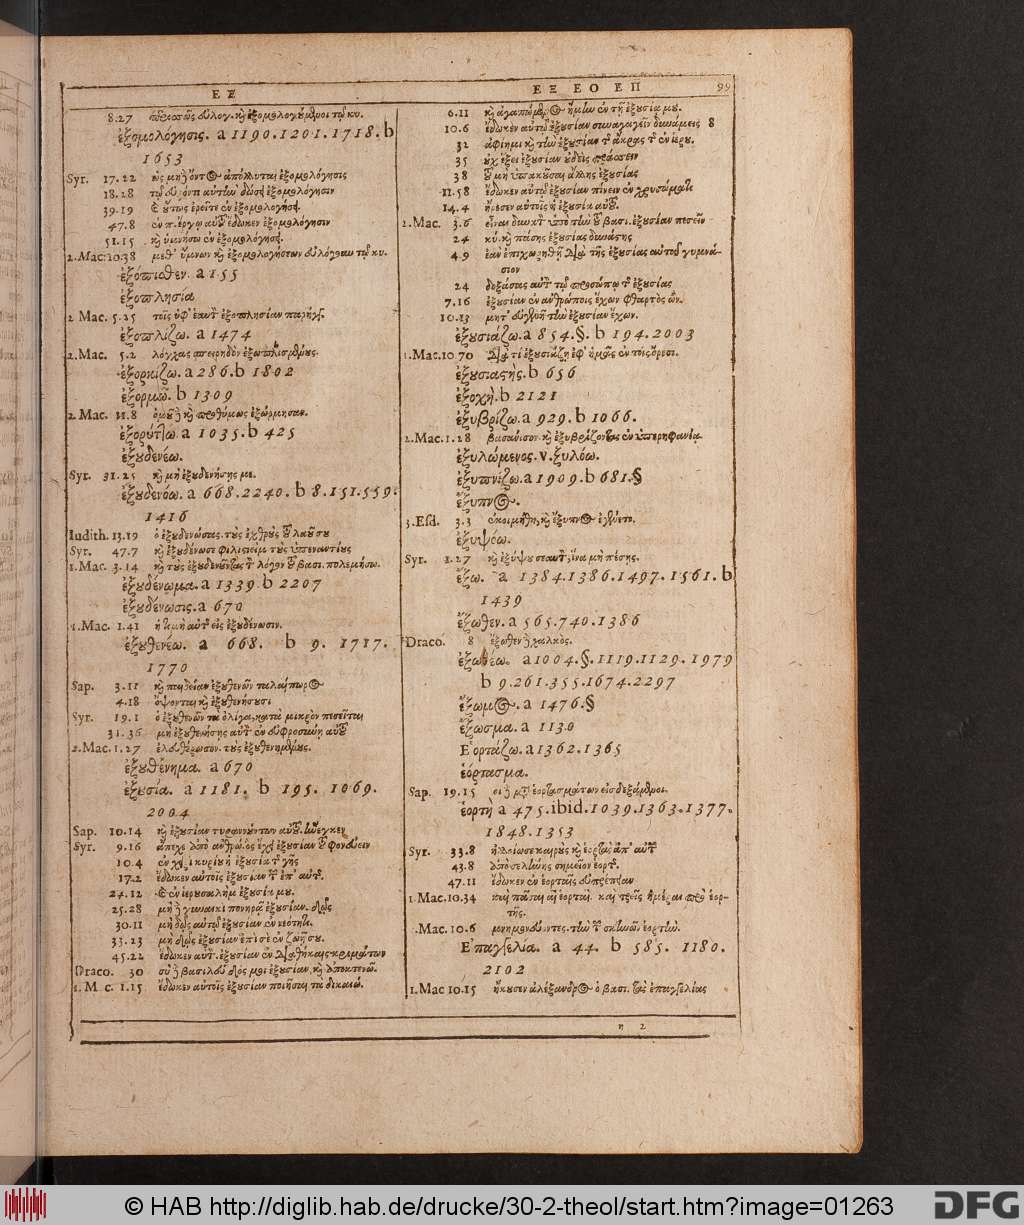 Ε Ξ
8.27 κỳ ἐξομολογούμενοι τῷ κυ.
ἐξομολόγησις. a 1190.1201.1718.b
1653
Syr. 17.22 ὡς μηδὲ ὄντος ἀπόλλυται ἐξομολόγησις
18.28 ἐξομολόγησιν
39.19 ἐρεῖτε ἐν ἐξομολογήσει
47.8 ἔδωκεν ἐξομολόγησιν
51.15 κỳ ὑμνήσω ἐν ἐξομολογήσει
2.Mac. 10.38 μεθ' ὕμνων κỳ ἐξομολογήσεων εὐλόγουν τῷ κυ.
ἐξόπιθεν. a 155
ἐξοπλησία
2 Mac. 5.25 τοῖς ὑφ' ἑαυτ ἐξοπλησίαν παρήγγ.
ἐξοπλίζω. a 1474
2.Mac. 5.2 λόγχας σπειρηδὸν ἐξωπλισμένους.
ἐξορκίζω. a 286.b 1802
ἐξορμῶ. b 1309
2.Mac. 11.8 ὁμοῦ δὲ κỳ προθύμως ἐξώρμησαν.
ἐξορύττω. a 1035.b 425
ἐξουδενέω.
Syr. 31.25 κỳ μὴ ἐξουδενήσης με.
ἐξουδενόω. a 668.2240. b 8.151.559.
1416
Iudith. 13.19 ὁ ἐξουδενώσας τοὺς ἐχθροὺς τοῦ λαοῦ σου
Syr. 47.7 κỳ ἐξουδένωσε φιλιστιεὶμ τοὺς ὑπεναντίους
1.Mac. 3.14 κỳ τοὺς ἐξουδενοῦντας τὸν λόγον τοῦ βασι. πολεμήσω.
ἐξουδένωμα. a 1339 b 2207
ἐξουδένωσις. a 670
1.Mac. 1.41 ἡ τιμὴ αὐτῆς εἰς ἐξουδένωσιν.
ἐξουθενέω. a 668. b 9. 1717.
1770
Sap. 3.11 κỳ παιδείαν ἐξουθενῶν ταλαίπωρος
4.18 ὄψονται κỳ ἐξουθενήσουσι
Syr. 19.1 ὁ ἐξουθενῶν τὰ ὀλίγα, κατὰ μικρὸν πεσεῖται
31.36 μὴ ἐξουθενήσης αὐτὸν ἐν εὐφροσύνη αὐτοῦ
2.Mac. 1.27 ἐλευθέρωσον. τοὺς ἐξουθενημένους.
ἐξουθένημα. a 670
ἐξουσία. a 1181. b 195. 1069.
2004
Sap. 10.14 κỳ ἐξουσίαν τυραννούντων αὐτοῦ. ἤνεγκεν
Syr. 9.16 ἄπεχε ἀπὸ ἀνθρώ. ὃς ἔχει ἐξουσίαν τοῦ φονεύειν
10.4 ἐν χειρὶ κυρίου ἡ ἐξουσία τῆς γῆς
17.2 ἔδωκεν αὐτοῖς ἐξουσίαν τῶν ἐπ' αὐτῆς.
24.12 κỳ ἐν ἱερουσαλὴμ ἐξουσία μου.
25.28 μὴ δὲ γυναικὶ πονηρᾷ ἐξουσίαν.
30.11 μὴ δῷς αὐτῷ ἐξουσίαν ἐν νεότητι.
33.23 μὴ δῷς ἐξουσίαν ἐπὶ σὲ ἐν ζωῇ σου.
45.22 ἔδωκεν αὐτ. ἐξουσίαν ἐν διαθήκαις κριμάτων
Draco. 30 σὺ δὲ βασιλεῦ δός μοι ἐξουσίαν, κỳ ἀποκτενῶ.
1. M c. 1.15 ἔδωκεν αὐτοῖς ἐξουσίαν ποιῆσαι τὰ δικαιώ.
Ε Ξ Ε Ο Ε Π 99
6.11 κỳ ἐν τῇ ἐξουσίᾳ μου.
10.6 ἔδωκεν αὐτῷ ἐξουσίαν συναγαγεῖν δυνάμεις 8
32 ἀφίημι κỳ τὴν ἐξουσίαν τῆς ἄκρας τῆς ἐν ἱερου.
35 οὐχ ἕξει ἐξουσίαν οὐδεὶς πράσσειν
38 τοῦ μὴ ὑπακοῦσαι ἄλλης ἐξουσίας
11.58 ἔδωκεν αὐτῷ ἐξουσίαν πίνειν ἐν χρυσώμασι
14.4 ἤρεσεν αὐτοῖς ἡ ἐξουσία αὐτοῦ.
2.Mac. 3.6 εἶναι δυνατ ὑπὸ τὴν τοῦ βασι. ἐξουσίαν πεσεῖν
24 κỳ πάσης ἐξουσίας δυνάστης
4.9 ἐὰν ἐπιχωρηθῇ διὰ τῆς ἐξουσίας αὐτοῦ γυμνά-
σιον
24 δοξάσας αὐτ τῷ προσώπῳ τῆς ἐξουσίας
7.16 ἐξουσίαν ἐν ἀνθρώποις ἔχων φθαρτὸς ὤν.
10.13 μητ' εὐγενῆ τὴν ἐξουσίαν ἔχων.
ἐξουσιάζω. a 854.§. b 194.2003
1.Mac. 10.70 διὰ τί ἐξουσιάζῃ ἐφ' ἡμᾶς ἐν τοῖς ὄρεσι.
ἐξουσιαστής. b 656
ἐξοχή. b 2121
ἐξυβρίζω. a 929. b 1066.
2.Mac. 1.28 βασάνισον. κỳ ἐξυβρίζοντας ἐν ὑπερηφανίᾳ.
ἐξυλωμένος. v. ξυλόω.
ἐξυπνίζω. a 1909. b 681.§
ἔξυπνος.
3.Esd. 3.3 ἐκοιμήθη, κỳ ἔξυπνος ἐγένετο.
ἐξυψόω.
Syr. 1.27 κỳ ἐξύψου σεαυτ, ἵνα μὴ πέσης.
ἔξω. a 1384.1386.1497.1561. b
1439
ἔξωθεν. a 565.740.1386
Draco. 8 ἔξωθεν δὲ χαλκός.
ἐξωθέω. a 1004.§.1119.1129.1979
b 9.261.355.1674.2297
ἔξωμος. a 1476.§
ἔξωσμα. a 1130
Ἑορτάζω. a 1362.1365
ἑόρτασμα.
Sap. 19.15 οἱ δὲ μετ' ἑορτασμάτων εἰσδεξάμενοι.
ἑορτὴ a 475.ibid.1039.1363.1377.
1848.1353
Syr. 33.8 ἠλλοίωσε καιροὺς κỳ ἑορτὰς ἀπ' αὐτ
43.8 ἀπὸ σελήνης σημεῖον ἑορτ.
47.11 ἔδωκεν ἐν ἑορταῖς εὐπρέπειαν
1.Mac. 10.34 καὶ πᾶσαι αἱ ἑορταὶ. καὶ τρεῖς ἡμέραι πρὸ ἑορ-
τῆς.
.Mac. 10.6 μνημονεύοντες. τὴν τῶν σκηνῶν ἑορτὴν.
Ἐπαγγελία. a 44. b 585. 1180.
2102
1.Mac 10.15 ἤκουσεν ἀλέξανδρος ὁ βασι. τὰς ἐπαγγελίας
η 2
© HAB http://diglib.hab.de/drucke/30-2-theol/start.htm?image=01263
DFG